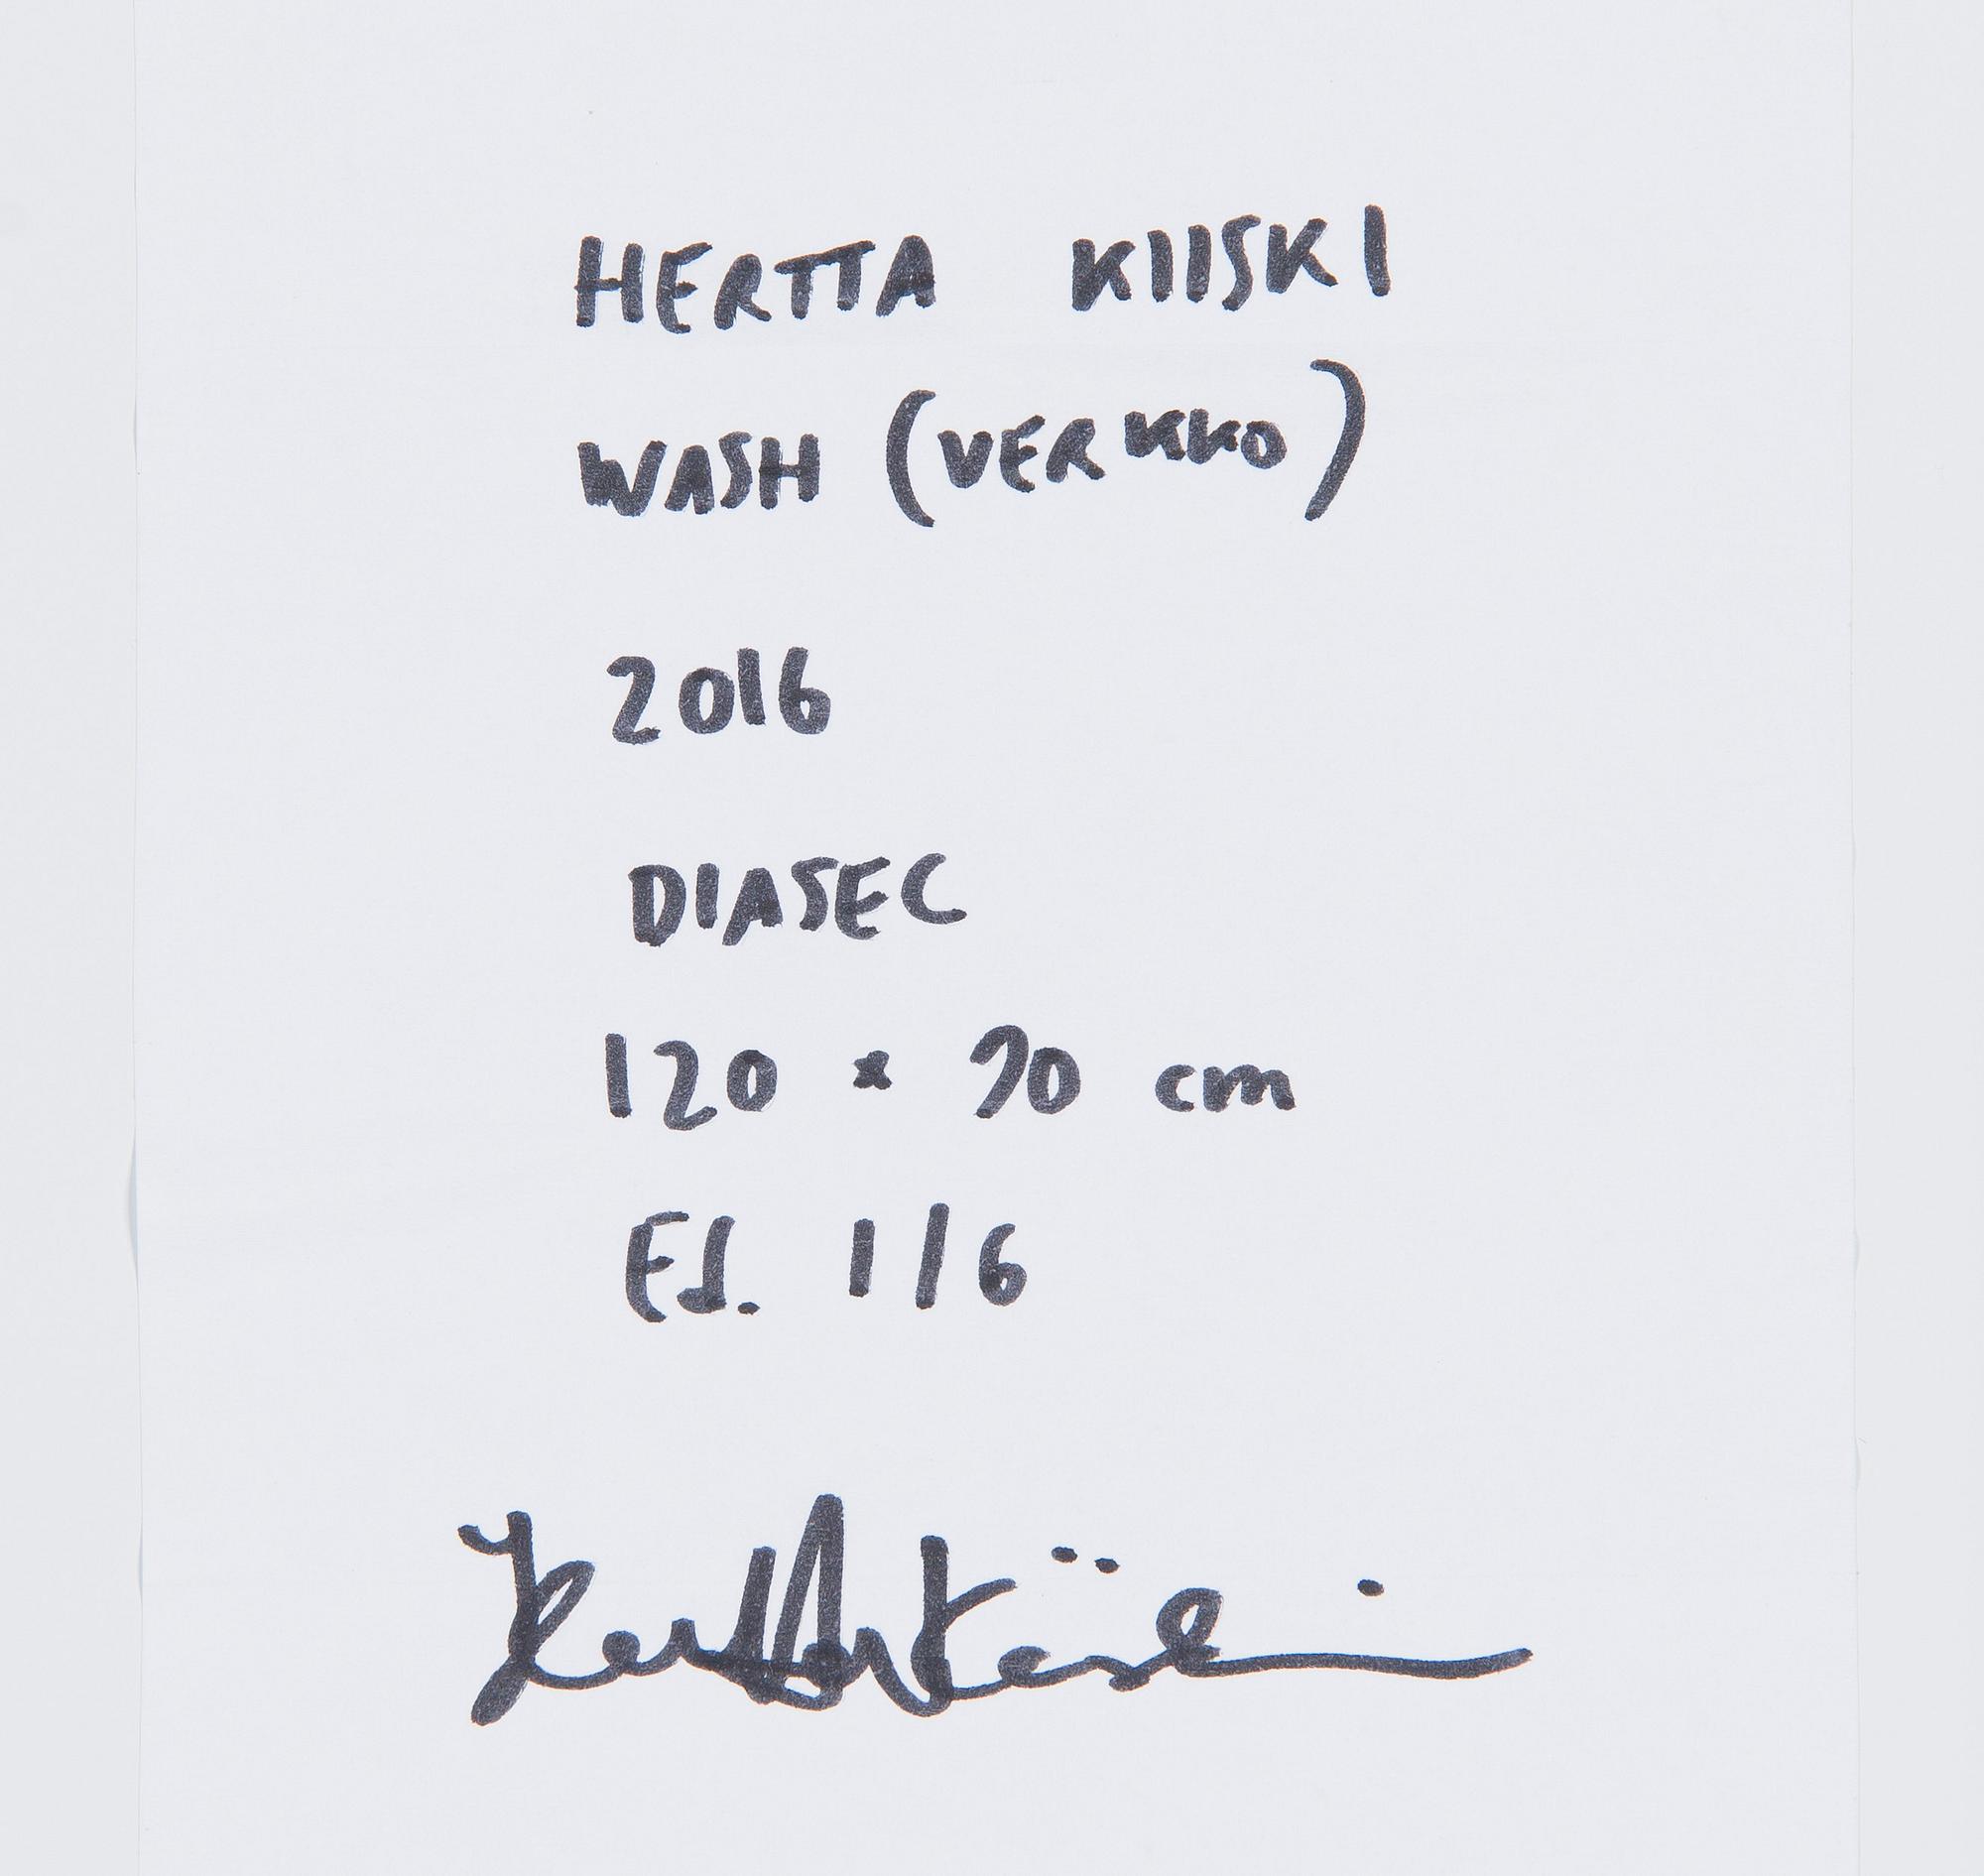 HERTTA KIISKI
WASH (VERKKO)
2016
DIASEC
120 x 90 cm
Ed. 1/6
Hertta Kiiski